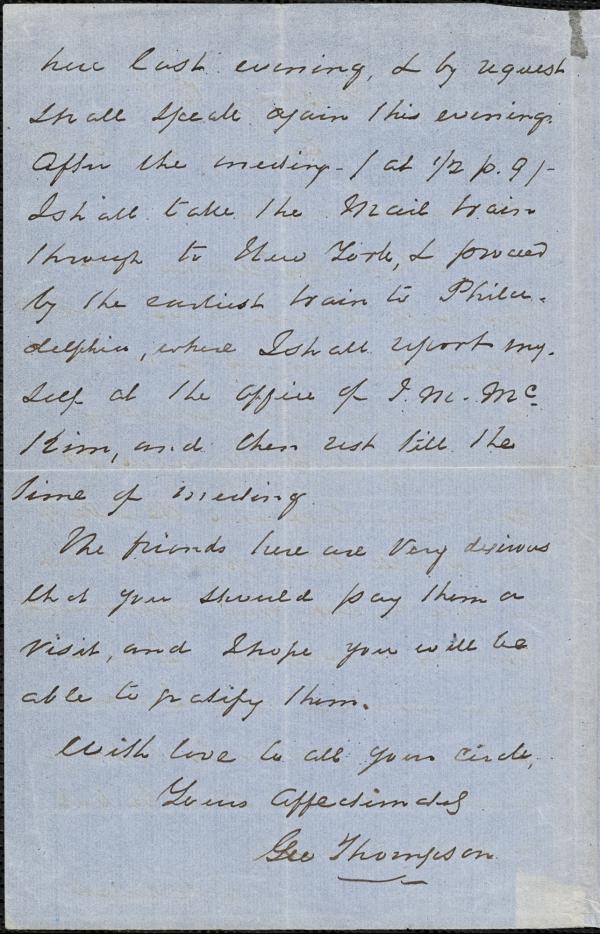 here last evening, & by request
shall speak again this evening.
After the meeting - (at 1/2 p. 9) -
I shall take the Mail train
through to New York, & proceed
by the earliest train to Phila-
delphia, where I shall report my-
self at the office of J. M. Mc
Kim, and then rest till the
time of meeting.
The friends here are very desirous
that you should pay them a
visit, and I hope you will be
able to gratify them.
With love to all your circle,
Yours affectionately
Geo Thompson